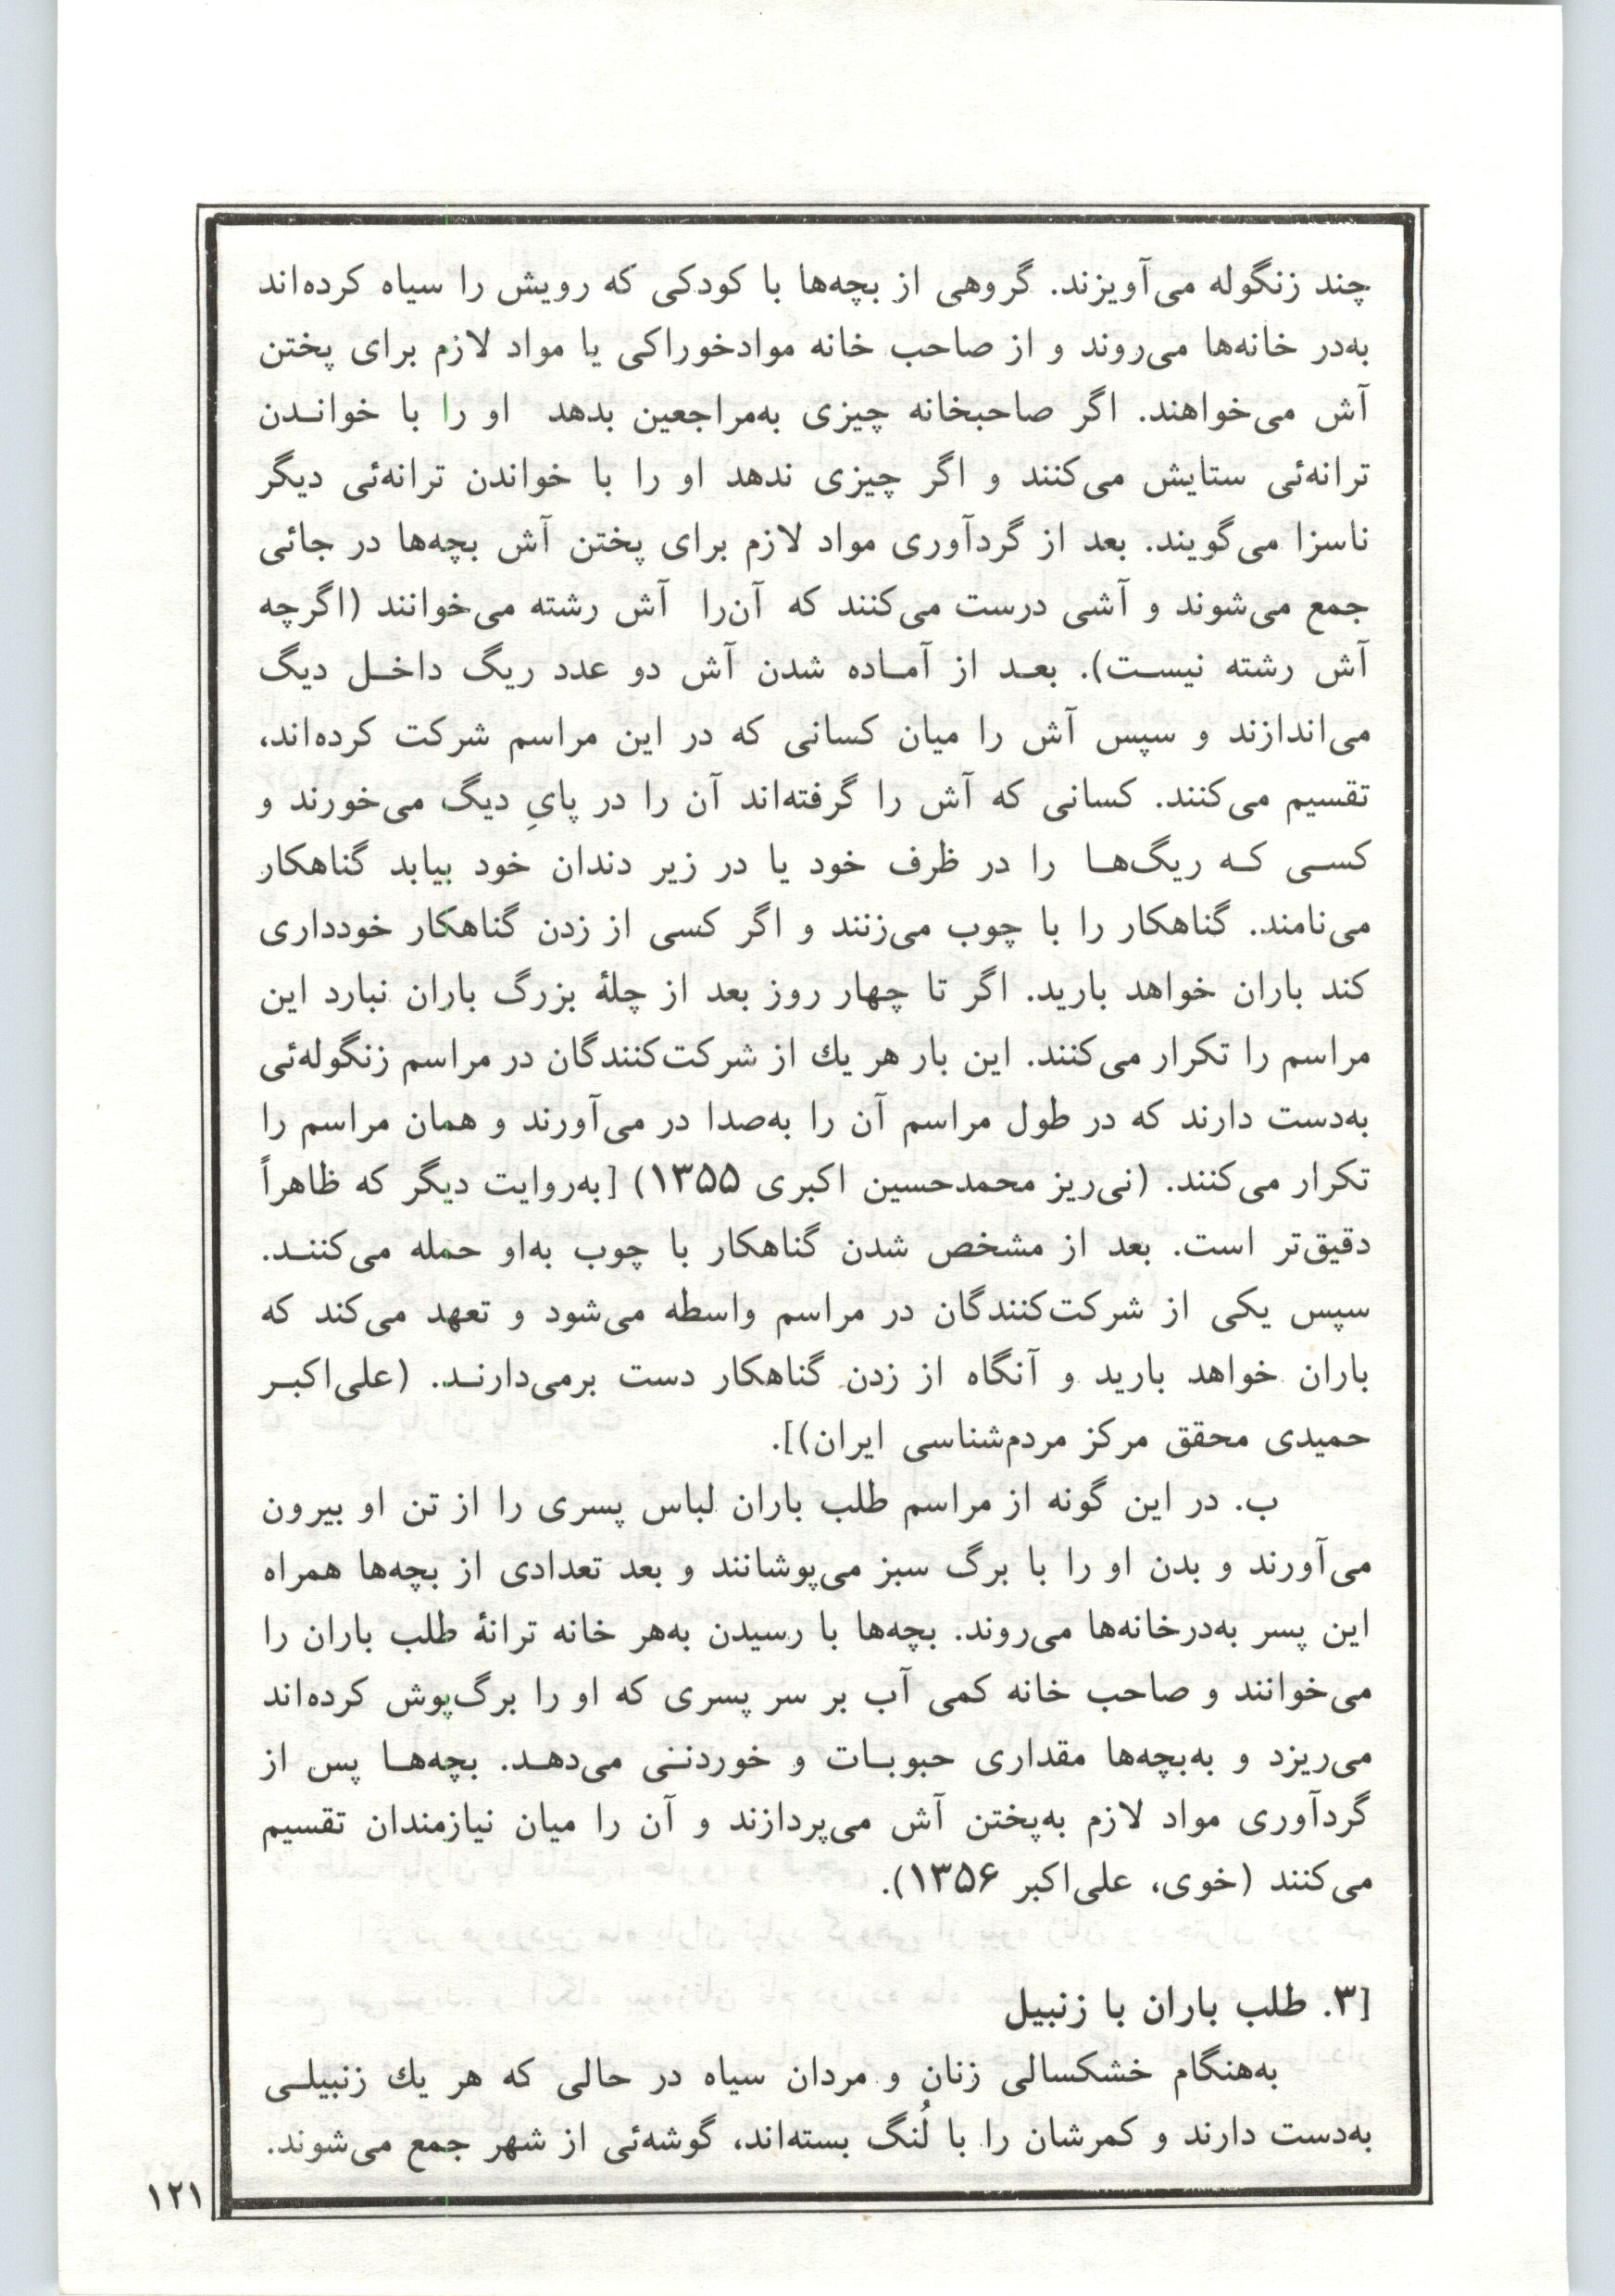 چند زنگوله می‌آویزند. گروهی از بچه‌ها با کودکی که رویش را سیاه کرده‌اند
به‌در خانه‌ها می‌روند و از صاحب خانه موادخوراکی یا مواد لازم برای پختن
آش می‌خواهند. اگر صاحبخانه چیزی به‌مراجعین بدهد او را با خوانـدن
ترانه‌ئی ستایش می‌کنند و اگر چیزی ندهد او را با خواندن ترانه‌ئی دیگر
ناسزا می‌گویند. بعد از گردآوری مواد لازم برای پختن آش بچه‌ها در جائی
جمع می‌شوند و آشی درست می‌کنند که آن‌را آش رشته می‌خوانند (اگرچه
آش رشته نیسـت). بعـد از آمـاده شدن آش دو عدد ریگ داخـل دیگ
می‌اندازند و سپس آش را میان کسانی که در این مراسم شرکت کرده‌اند،
تقسیم می‌کنند. کسانی که آش را گرفته‌اند آن را در پایِ دیگ می‌خورند و
کسـی کـه ریگ‌هـا را در ظرف خود یا در زیر دندان خود بیابد گناهکار
می‌نامند. گناهکار را با چوب می‌زنند و اگر کسی از زدن گناهکار خودداری
کند باران خواهد بارید. اگر تا چهار روز بعد از چلهٔ بزرگ باران نبارد این
مراسم را تکرار می‌کنند. این بار هر یك از شرکت‌کنندگان در مراسم زنگوله‌ئی
به‌دست دارند که در طول مراسم آن را به‌صدا در می‌آورند و همان مراسم را
تکرار می‌کنند. (نی‌ریز محمدحسین اکبری ۱۳۵۵) [به‌روایت دیگر که ظاهراً
دقیق‌تر است. بعد از مشخص شدن گناهکار با چوب به‌او حمله می‌کننـد.
سپس یکی از شرکت‌کنندگان در مراسم واسطه می‌شود و تعهد می‌کند که
باران خواهد بارید و آنگاه از زدن گناهکار دست برمی‌دارنـد. (علی‌اکبـر
حمیدی محقق مرکز مردم‌شناسی ایران)].
ب. در این گونه از مراسم طلب باران لباس پسری را از تن او بیرون
می‌آورند و بدن او را با برگ سبز می‌پوشانند و بعد تعدادی از بچه‌ها همراه
این پسر به‌درخانه‌ها می‌روند. بچه‌ها با رسیدن به‌هر خانه ترانهٔ طلب باران را
می‌خوانند و صاحب خانه کمی آب بر سر پسری که او را برگ‌پوش کرده‌اند
می‌ریزد و به‌بچه‌ها مقداری حبوبـات و خوردنـی می‌دهـد. بچه‌هـا پس از
گردآوری مواد لازم به‌پختن آش می‌پردازند و آن را میان نیازمندان تقسیم
می‌کنند (خوی، علی‌اکبر ۱۳۵۶).
[۳. طلب باران با زنبیل
به‌هنگام خشکسالی زنان و مردان سیاه در حالی که هر یك زنبیلـی
به‌دست دارند و کمرشان را با لُنگ بسته‌اند، گوشه‌ئی از شهر جمع می‌شوند.
۱۲۱